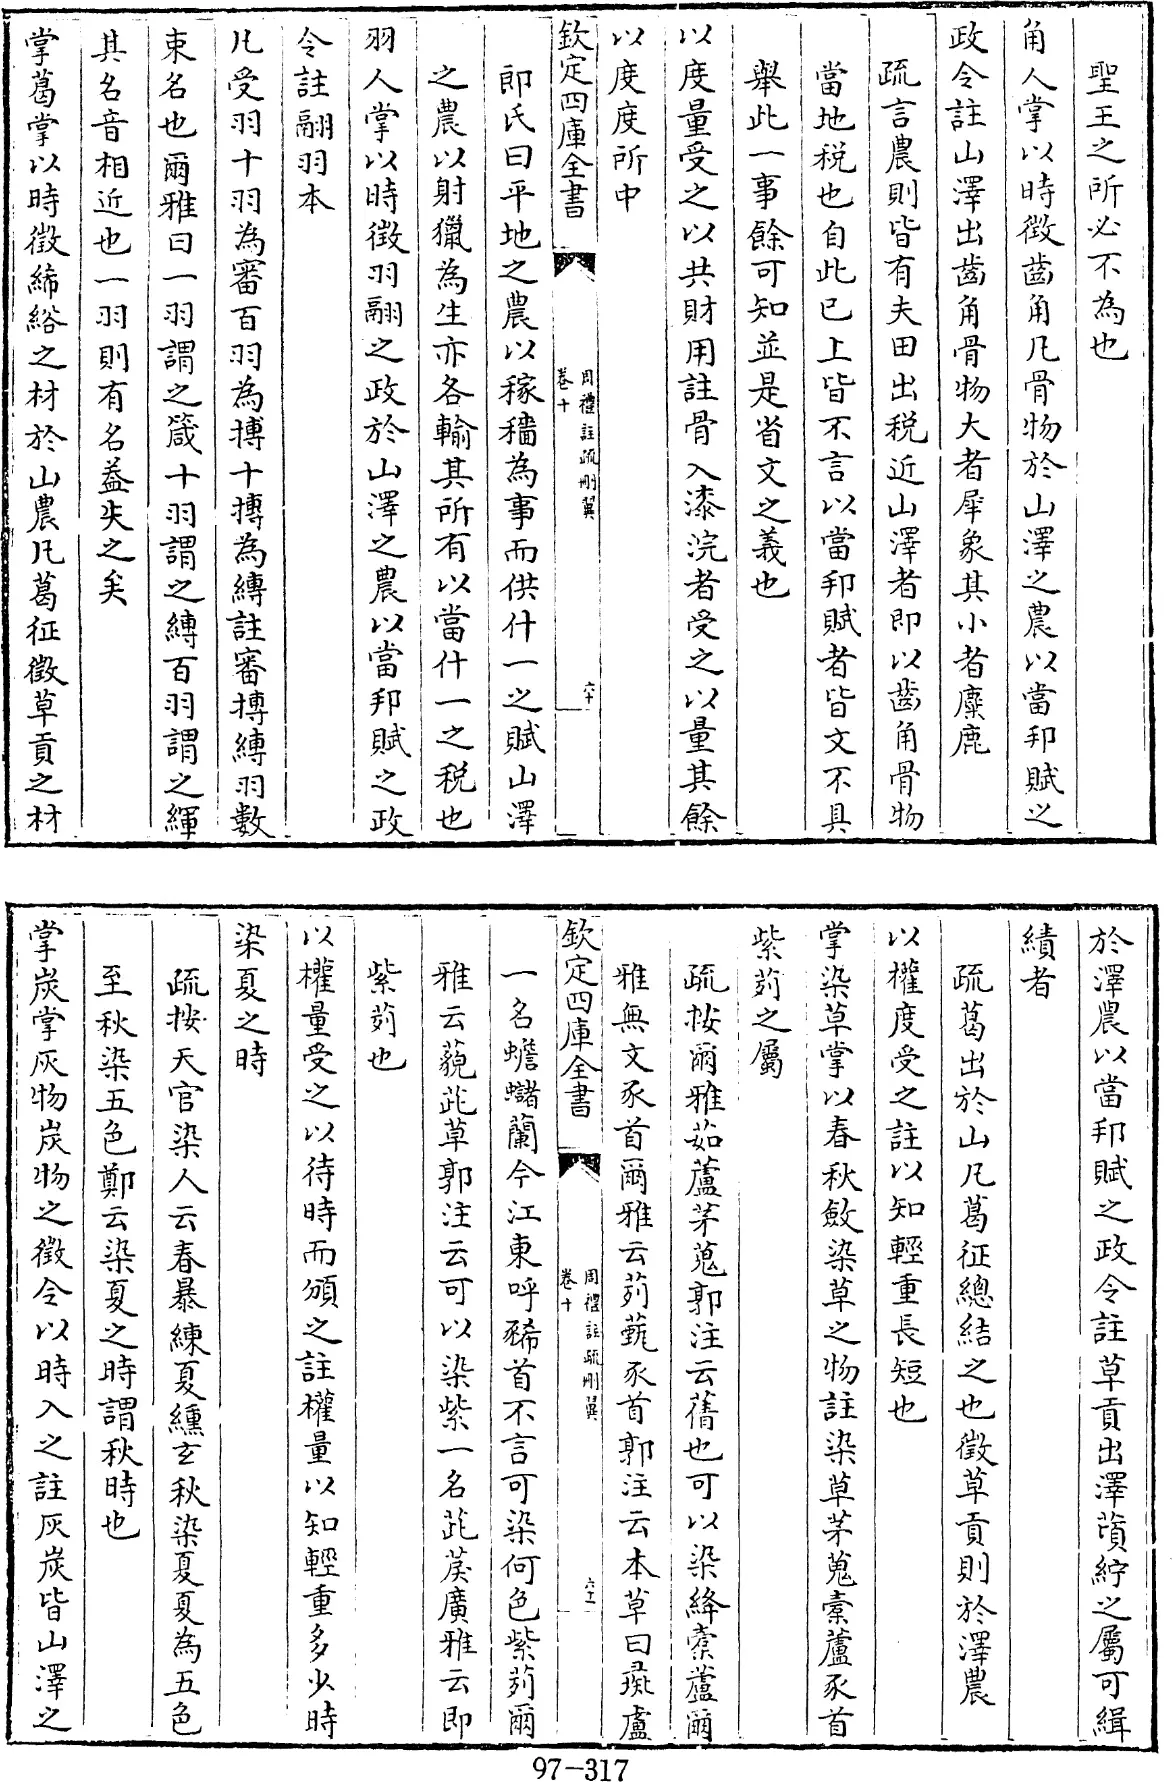 聖王之所必不為也
角人掌以時徵齒角凡骨物於山澤之農以當邦賦之
政令註山澤出齒角骨物大者犀象其小者麋鹿
疏言農則皆有夫田出税近山澤者即以齒角骨物
當地税也自此已上皆不言以當邦賦者皆文不具
舉此一事餘可知並是省文之義也
以度量受之以共財用註骨入漆浣者受之以量其餘
以度度所中
欽定四庫全書
周禮註疏刪翼
卷十
六十
郎氏曰平地之農以稼穡為事而供什一之賦山澤
之農以射獵為生亦各輸其所有以當什一之税也
羽人掌以時徵羽翮之政於山澤之農以當邦賦之政
令註翮羽本
凡受羽十羽為審百羽為摶十摶為縳註審摶縳羽數
束名也爾雅曰一羽謂之箴十羽謂之縳百羽謂之緷
其名音相近也一羽則有名葢失之矣
掌葛掌以時徵絺綌之材於山農凡葛征徵草貢之材
於澤農以當邦賦之政令註草貢出澤薠紵之屬可緝
績者
疏葛出於山凡葛征總結之也徵草貢則於澤農
以權度受之註以知輕重長短也
掌染草掌以春秋斂染草之物註染草茅蒐橐蘆豕首
紫茢之屬
疏按爾雅茹蘆茅蒐郭注云蒨也可以染絳橐蘆爾
雅無文豕首爾雅云茢薽豕首郭注云本草曰彘盧
欽定四庫全書
周禮註疏刪翼
卷十
六十一
一名蟾蠩蘭今江東呼豨首不言可染何色紫茢爾
雅云藐茈草郭注云可以染紫一名茈䓞廣雅云即
紫茢也
以權量受之以待時而頒之註權量以知輕重多少時
染夏之時
疏按天官染人云春暴練夏纁玄秋染夏夏為五色
至秋染五色鄭云染夏之時謂秋時也
掌炭掌灰物炭物之徵令以時入之註灰炭皆山澤之
97-317